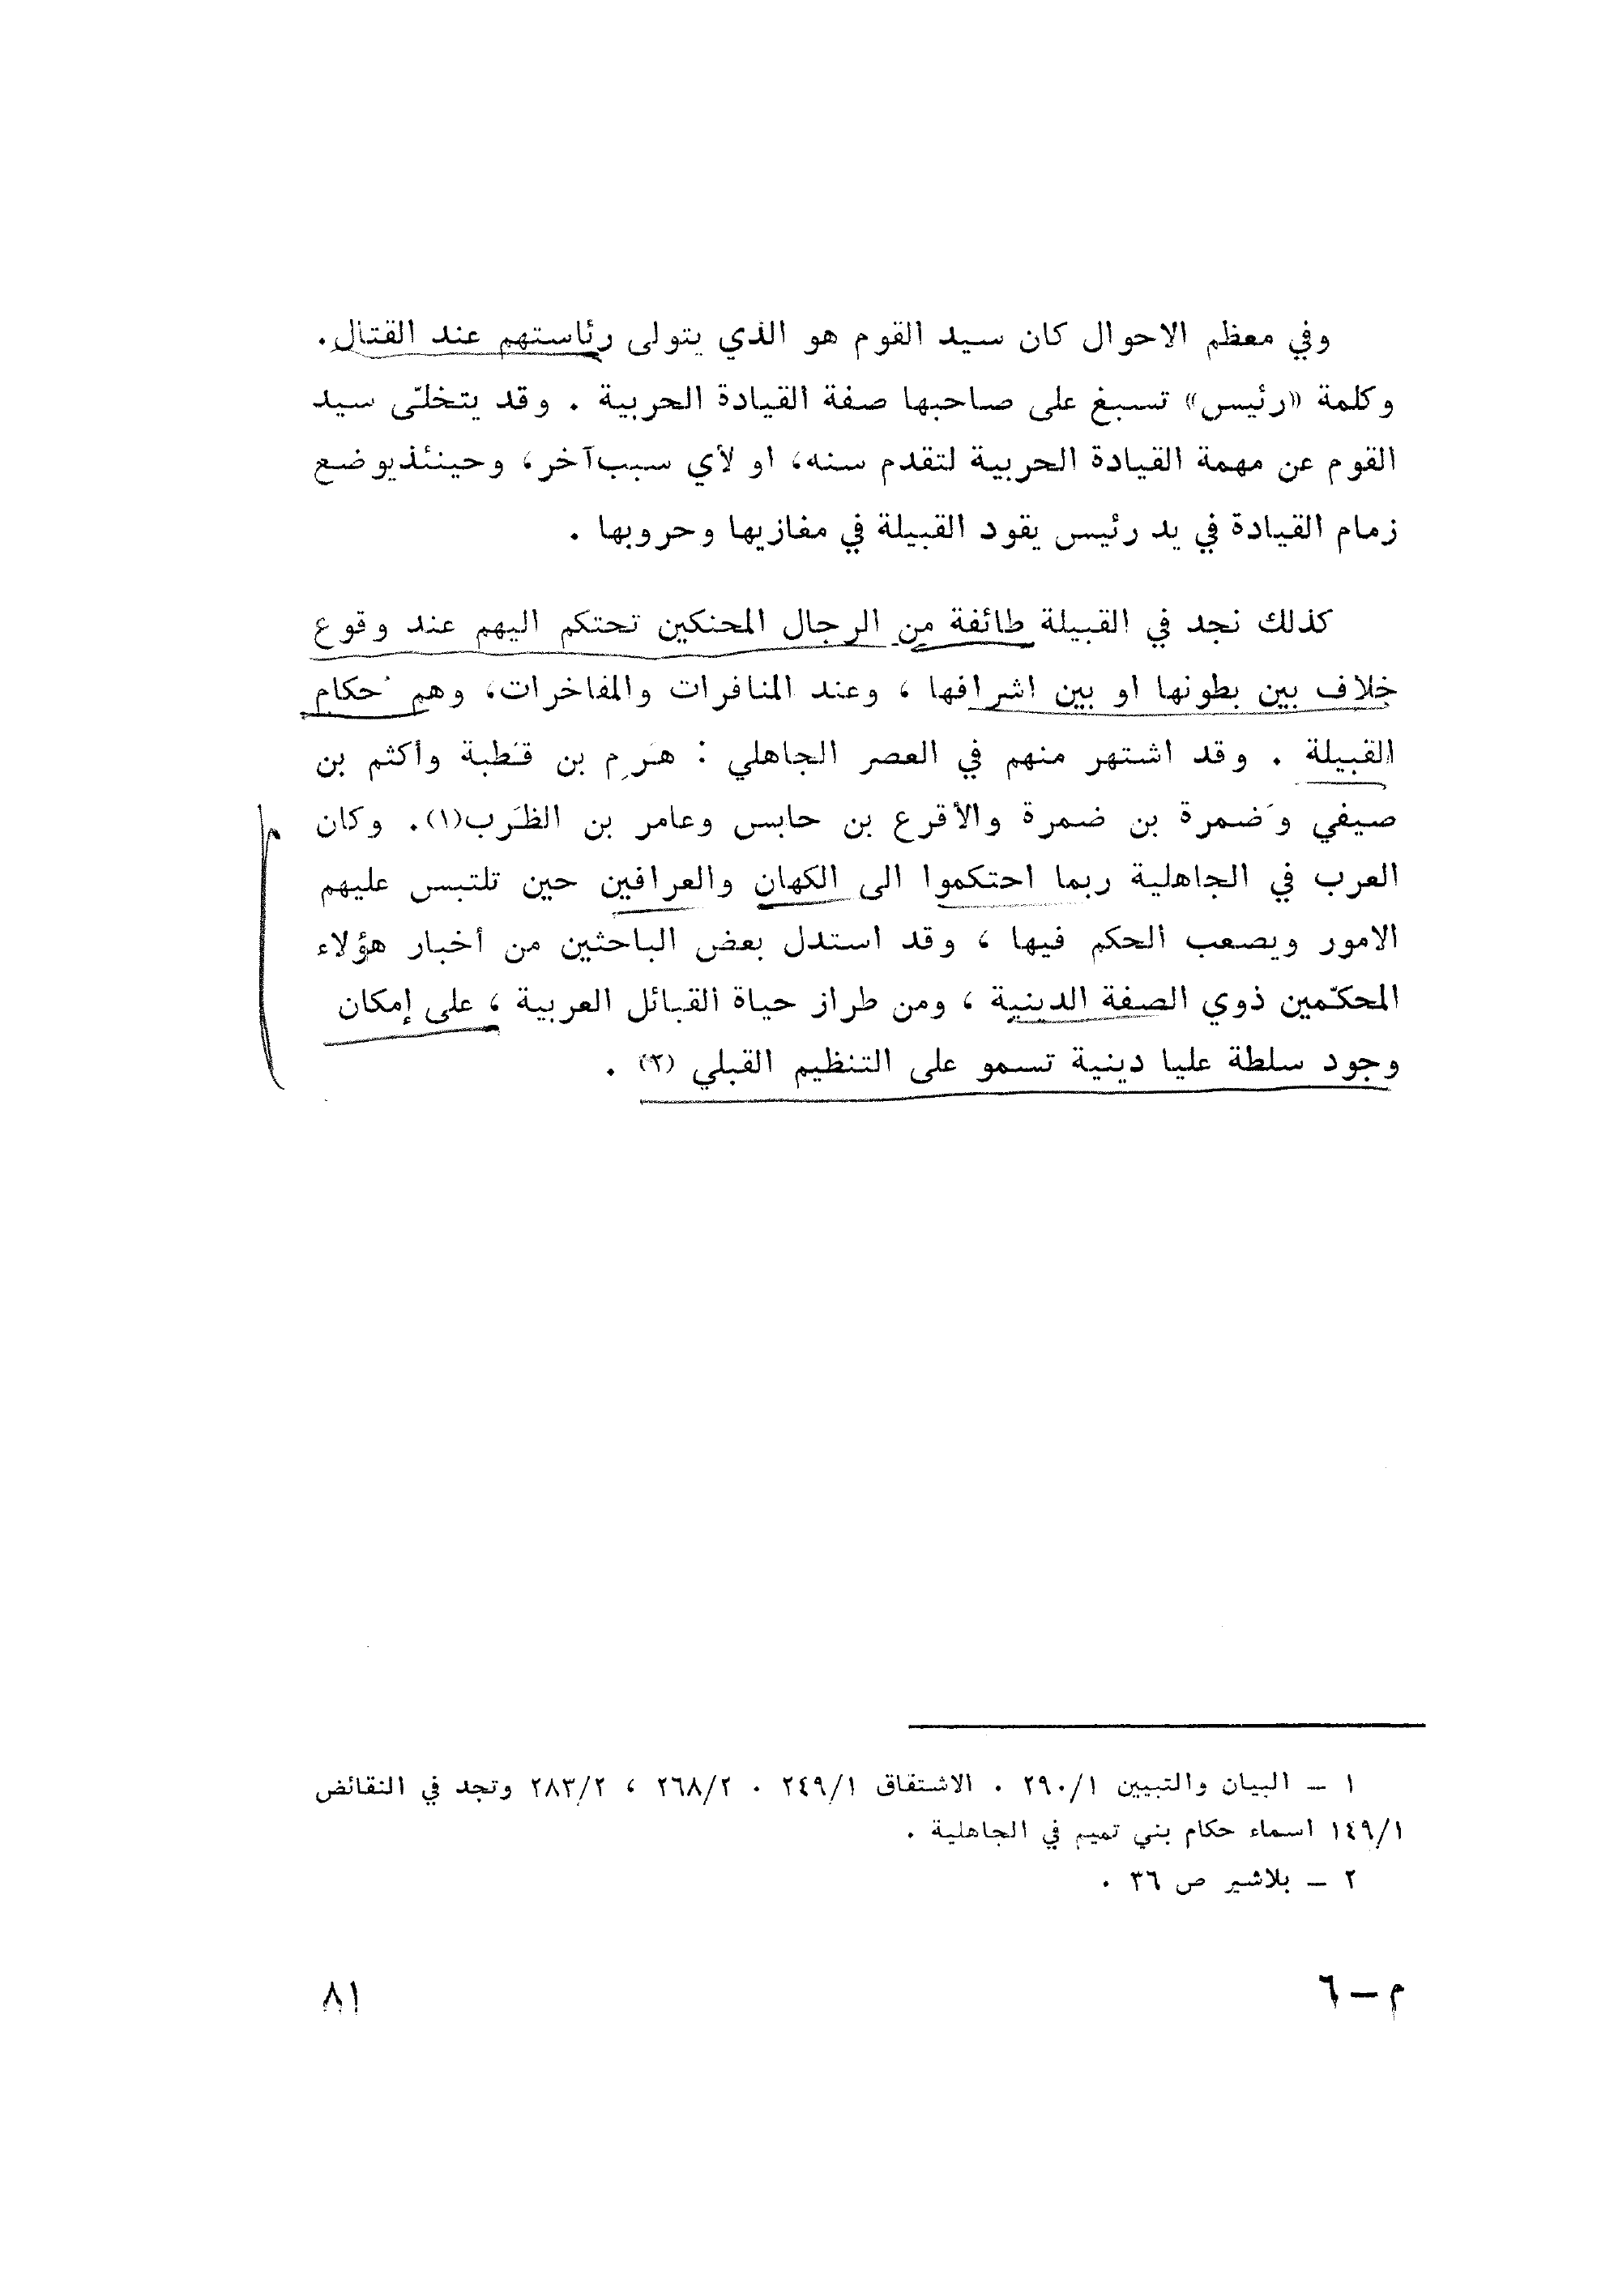 وفي معظم الاحوال كان سيد القوم هو الذي يتولى رئاستهم عند القتال.
وكلمة «رئيس» تسبغ على صاحبها صفة القيادة الحربية . وقد يتخلّى سيد
القوم عن مهمة القيادة الحربية لتقدم سنه، او لأي سبب آخر، وحينئذ يوضع
زمام القيادة في يد رئيس يقود القبيلة في مغازيها وحروبها .
كذلك نجد في القبيلة طائفة من الرجال المحنكين تحتكم اليهم عند وقوع
خلاف بين بطونها او بين اشرافها ، وعند المنافرات والمفاخرات، وهم حكام
القبيلة . وقد اشتهر منهم في العصر الجاهلي : هَرِم بن قطبة وأكثم بن
صيفي وضَمرة بن ضمرة والأقرع بن حابس وعامر بن الظَرب(١). وكان
العرب في الجاهلية ربما احتكموا الى الكهان والعرافين حين تلتبس عليهم
الامور ويصعب الحكم فيها ، وقد استدل بعض الباحثين من أخبار هؤلاء
المحكّمين ذوي الصفة الدينية ، ومن طراز حياة القبائل العربية ، على إمكان
وجود سلطة عليا دينية تسمو على التنظيم القبلي (٢) .
١ ــ البيان والتبيين ٢٩٠/١ . الاشتقاق ٢٤٩/١ . ٢٦٨/٢ ، ٢٨٣/٢ وتجد في النقائض
١٤٩/١ اسماء حكام بني تميم في الجاهلية .
٢ ــ بلاشير ص ٣٦ .
م ــ ٦
٨١